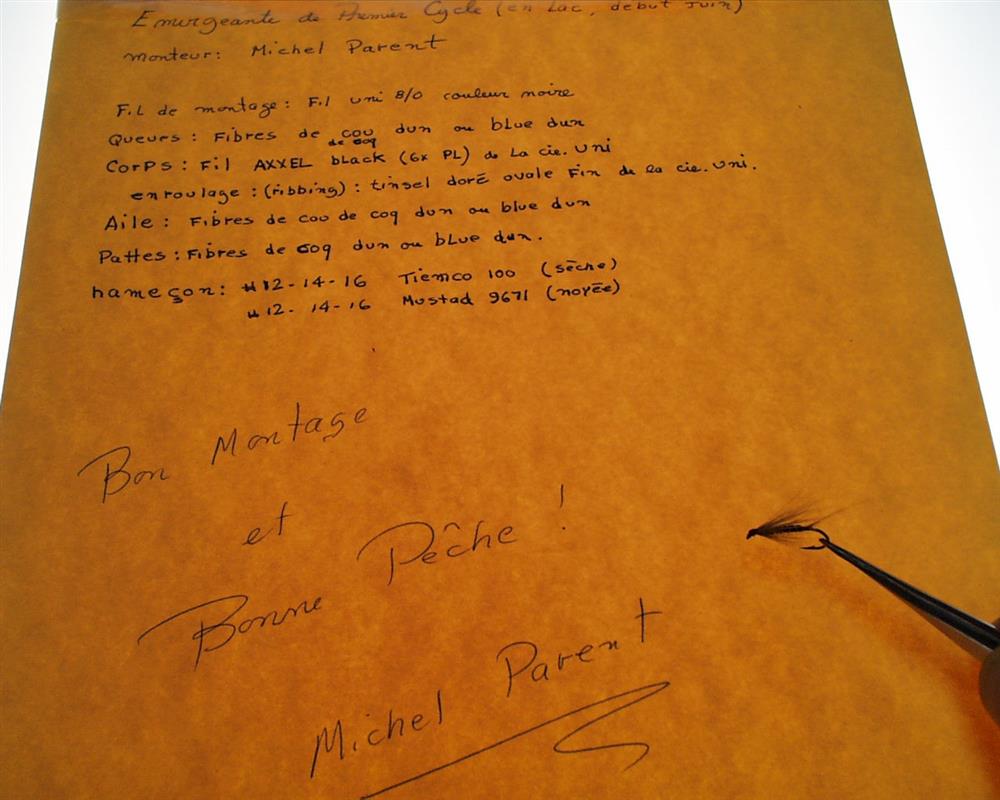 Emurgeante de Premier Cycle (en Lac, début Juin)
monteur: Michel Parent
Fil de montage: Fil uni 8/0 couleur noire
Queues: Fibres de cou de coq dun ou blue dun
Corps: Fil AXXEL black (6x PL) de La cie. Uni
enroulage: (ribbing): tinsel doré ovale Fin de la cie. Uni.
Aile: Fibres de cou de coq dun ou blue dun
Pattes: Fibres de coq dun ou blue dun.
hameçon: #12-14-16 Tiemco 100 (sèche)
#12-14-16 Mustad 9671 (noyée)
Bon Montage
et
Bonne Pêche !
Michel Parent